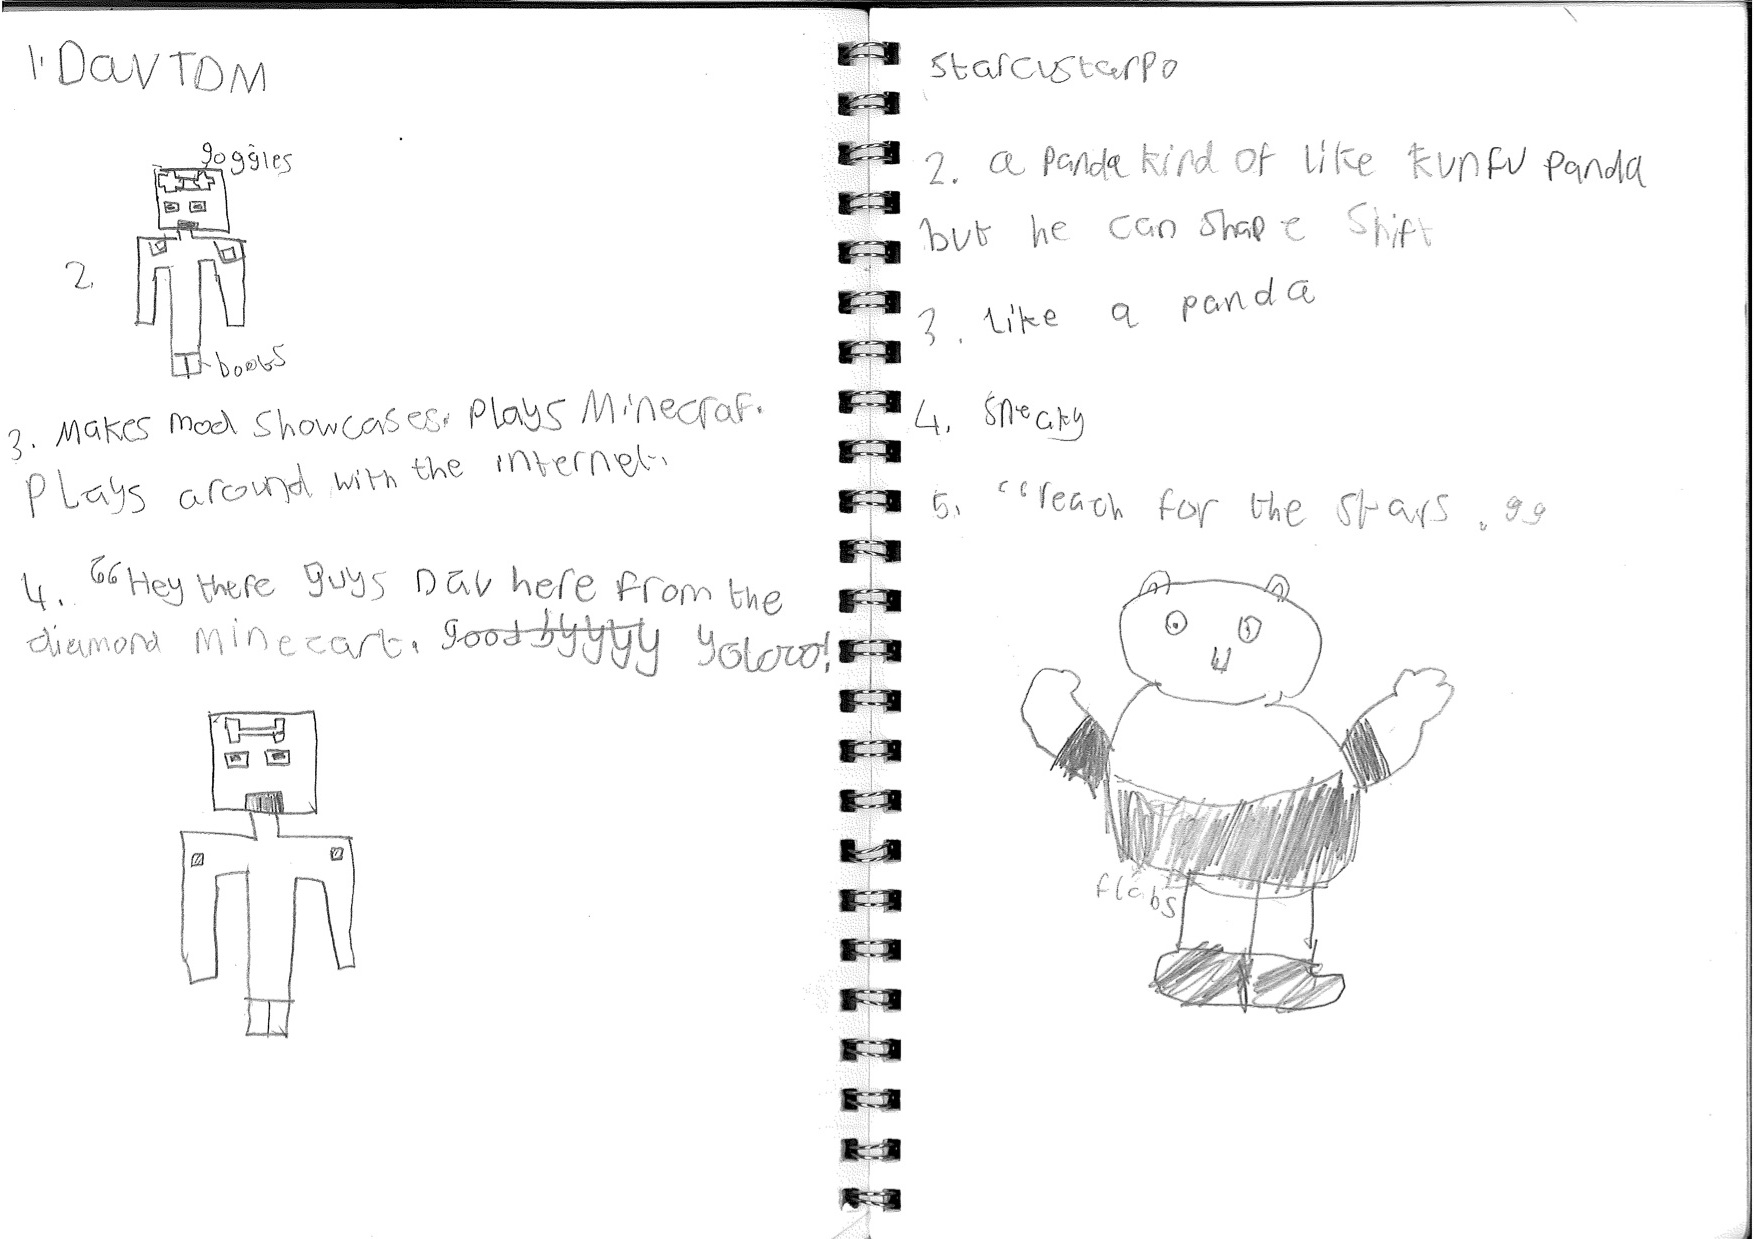 1. DavTDM
goggles
2.
boots
3. Makes mod showcases. Plays Minecraf.
Plays around with the internet.
4. “Hey there guys Dav here from the
diamond minecart. good byyyyy Yolooo!
starcustarpo
2. a panda kind of like kunfu panda
but he can shape shift
3. Like a panda
4. Sneaky
5. “reach for the stars.”
flabs